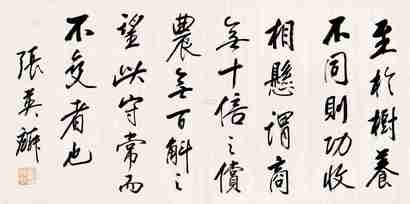 至於樹養
不同則功收
相懸謂商
無十倍之價
農無百斛之
望此守常而
不變者也
張英麟